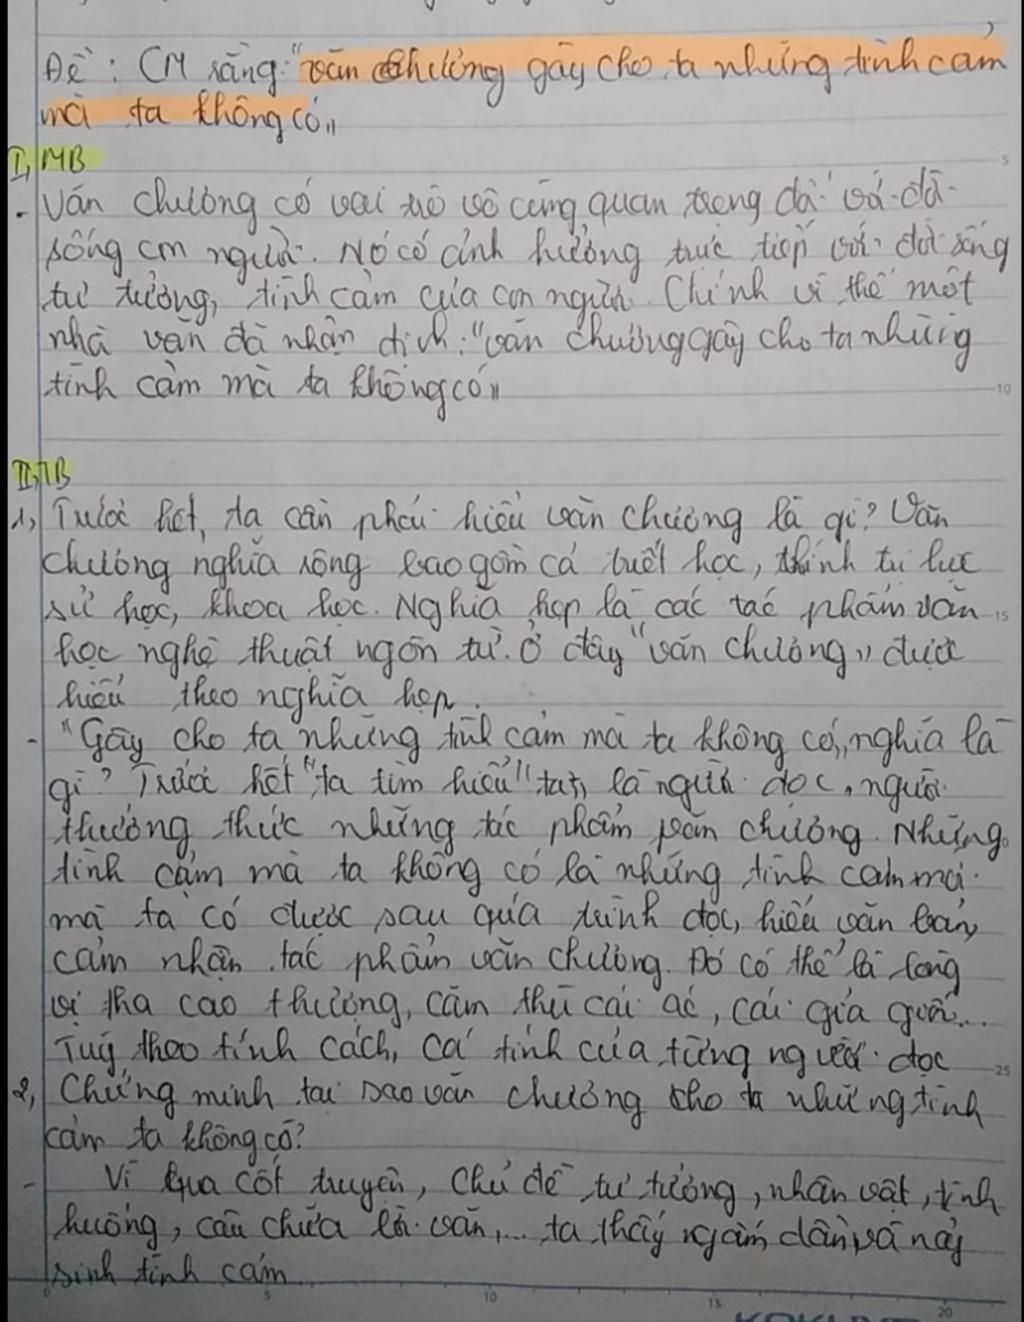 Đề: CM rằng "văn chương gây cho ta những tình cảm
mà ta không có"
I, MB
- Văn chương có vai trò vô cùng quan trọng đối với đời
sống cm người. Nó có ảnh hưởng trực tiếp với đời sống
tư tưởng, tình cảm của con người. Chính vì thế một
nhà văn đã nhận định: "văn chương gây cho ta những
tình cảm mà ta không có"
II, TB
1, Trước hết, ta cần phải hiểu văn chương là gì? Văn
chương nghĩa rộng bao gồm cả triết học, chính trị học
sử học, khoa học. Nghĩa hẹp là các tác phẩm văn
học nghệ thuật ngôn từ. Ở đây "văn chương" được
hiểu theo nghĩa hẹp.
- "Gây cho ta những tình cảm mà ta không có" nghĩa là
gì? Trước hết "ta tìm hiểu" là người đọc, người
thưởng thức những tác phẩm văn chương. Những
tình cảm mà ta không có là những tình cảm mới
mà ta có được sau quá trình đọc, hiểu văn bản,
cảm nhận tác phẩm văn chương. Đó có thể là lòng
vị tha cao thượng, căm thù cái ác, cái giả dối...
Tuỳ theo tính cách, cá tính của từng người đọc
2, Chứng minh tại sao văn chương cho ta những tình
cảm ta không có?
- Vì qua cốt truyện, chủ đề tư tưởng, nhân vật, tình
huống, câu chữa lời văn,... ta thấy ngấm dần và nảy
sinh tình cảm
5
10
15
25
0 5 10 15 20